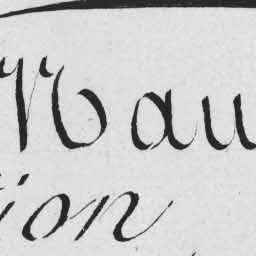 Nau
ion